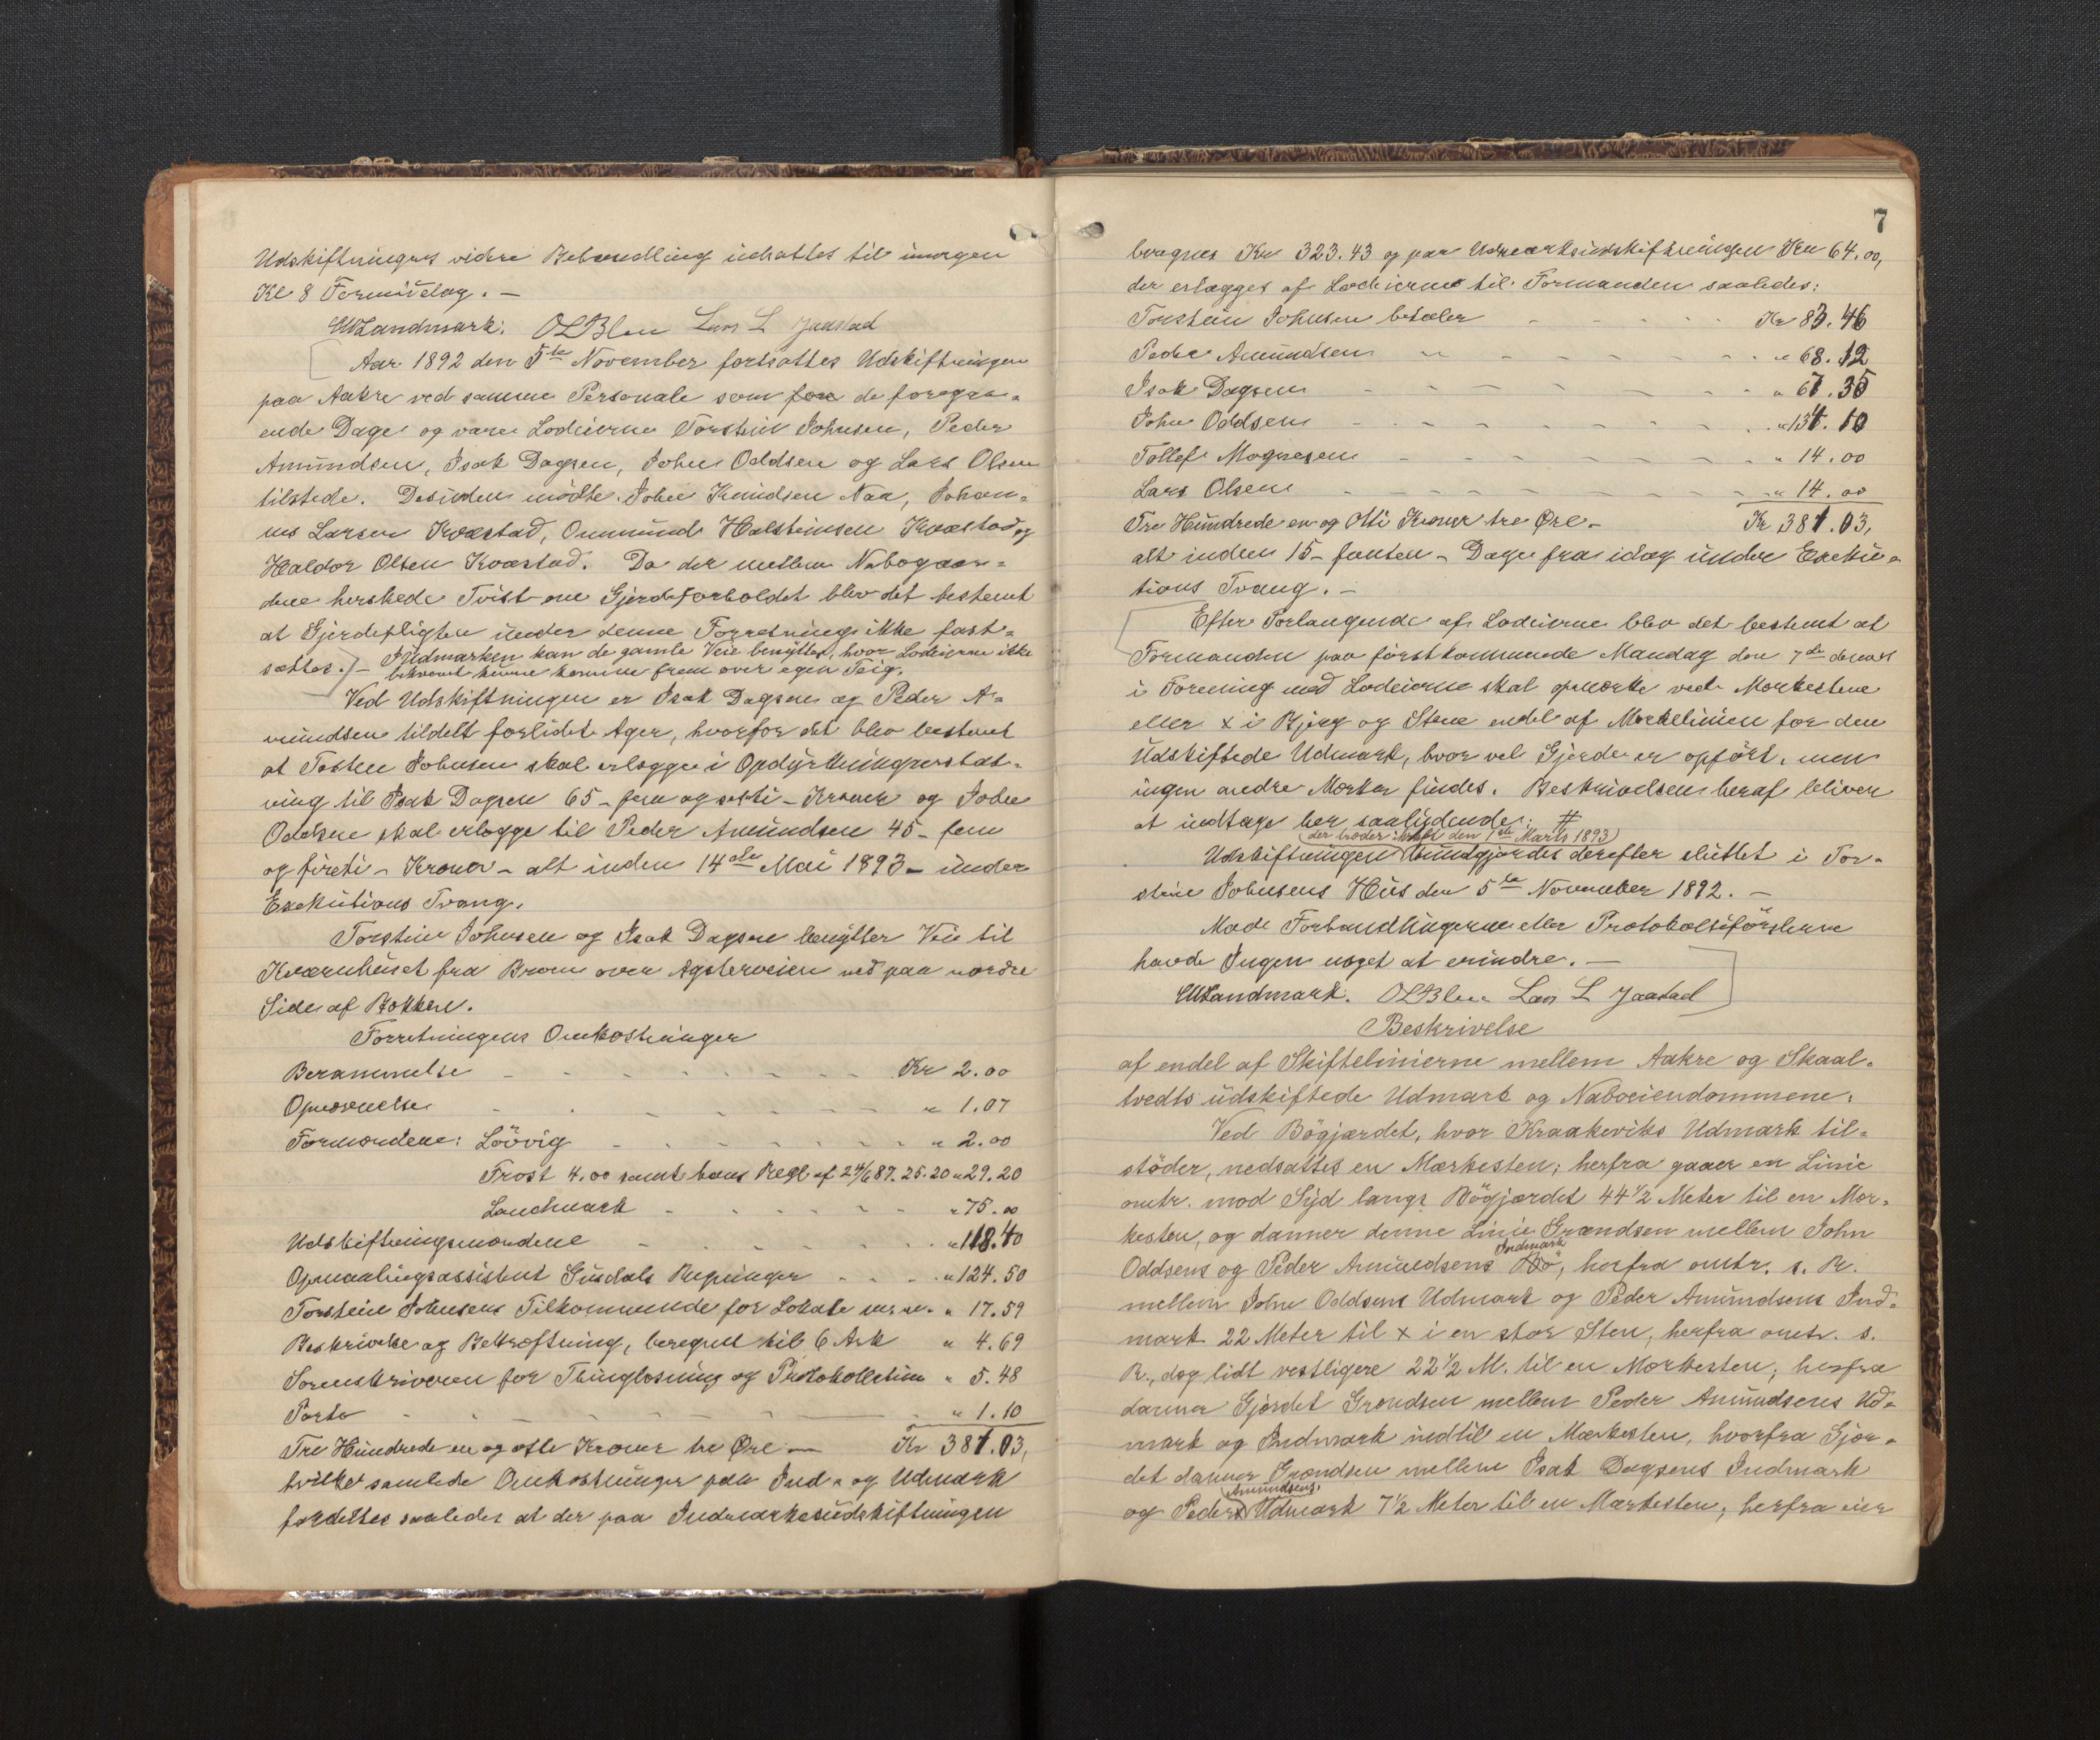 Udskiftningens videre Behandling udsattes til imorgen
Kl 8 Formiddag. —
EMLandmark. OLBleie Lars L Jaastad
Aar 1892 den 5te November fortsattes Udskiftningen
paa Aakre ved samme Personale som for de foregaa-
ende Dage og vare Lodeierne Torstein Johnsen, Peder
Amundsen, Isak Dagsen, John Oddsen og Lars Olsen
tilstede. Desuden mödte John Knudsen Naa, Johan-
nes Larsen Kvæstad, Ommund Halsteinsen Kvæstad og
Haldor Olsen Kvæstad. Da der mellem Nabogaar-
dene herskede Tvist om Gjerdeforholdet blev det bestemt
at Gjerdepligten under denne Forretning ikke fast-
sættes. — I Udmarken kan de gamle Veie benyttes, hvor Lodeierne ikke
bekvemt kunne komme frem over egen Teig.
Ved Udskiftningen er Isak Dagsen og Peder A-
mundsen tildelt forlidet Ager, hvorfor det blev bestemt
at Tosten Johnsen skal erlægge i Opdyrkningserstat-
ning til Isak Dagsen 65 - fem og sexti - Kroner og John
Oddsen skal erlægge til Peder Amundsen 45 - fem
og fireti - Kroner - alt inden 14de Mai 1893 - under
Exekutions Tvang.
Torstein Johnsen og Isak Dagsen benytter Vei til
Kværnhuset fra Broen over Agsterveien ned paa nordre
Side af Bækken.
Forretningens Omkostninger
Berammelse - - - Kr 2.00
Opnævnelse - - - " 1.07
Formændene: Löövig - - - " 2.00
Frost 4.00 samt hans Regl af 24/6 87. 25.20 " 29.20
Landmark - - - " 75.00
Udskiftningsmændene - - - " 118.40
Opmaalingsassistent Gusdals Regninger - - - " 124.50
Torstein Johnsens Tilkommende for Lokale m.m. " 17.59
Beskrivelse og Bekræftning, beregnet til 6 Ark " 4.69
Sorenskriveren for Thinglæsning og Protokollation " 5.48
Porto - - - " 1.10
Tre Hundrede en og otte Kroner tre Øre — Kr 381.03,
hvilke samlede Omkostninger paa Ind- og Udmark
fordeltes saaledes at der paa Indmarksudskiftningen
7
beregnes Kr 323.43 og paa Udmarksudskiftningen Kr 64.00,
der erlægges af Lodeierne til Formanden saaledes:
Torstein Johnsen betaler - - - Kr 83.46
Peder Amundsen " - - - " 68.12
Isak Dagsen - - - " 67.35
John Oddsen - - - " 134.10
Tollef Mognesen - - - " 14.00
Lars Olsen - - - " 14.00
Tre Hundrede en og Otti Kroner tre Øre - Kr 381.03,
alt inden 15 - femten - Dage fra idag under Exeku-
tions Tvang. —
Efter Forlangende af Lodeierne blev det bestemt at
Formanden paa förstkommende Mandag den 7de dennes
i Forening med Lodeierne skal opmærke ved Merkestene
eller x i Bjerg og Stene endel af Merkelinien for den
Udskiftede Udmark, hvor vel Gjerde er opfört, men
ingen andre Merker findes. Beskrivelsen heraf bliver
at indtage her saalydende: #
(der træder i Kraft den 1ste Marts 1893)
Udskiftningen kundgjordes derefter sluttet i Tor-
stein Johnsens Hus den 5te November 1892. —
Mod Forhandlingerne eller Protokolsförslerne
havde Ingen noget at erindre. —
EMLandmark. OLBleie Lars L Jaastad
Beskrivelse
af endel af Skiftelinierne mellem Aakre og Skaal-
tvedts udskiftede Udmark og Naboeiendommene:
Ved Bögjærdet, hvor Kraakeviks Udmark til-
stöder, nedsattes en Mærkesten; herfra gaaer en Linie
omtr. mod Syd langs Bögjærdet 44½ Meter til en Mær-
kesten, og danner denne Linie Grændsen mellem John
Oddsens og Peder Amundsens Indmark Bö, herfra omtr. s. R.
mellem John Oddsens Udmark og Peder Amundsens Ind-
mark 22 Meter til x i en stor Sten, herfra omtr. s.
R., dog lidt vestligere 22½ M. til en Mærkesten; herfra
danner Gjærdet Grændsen mellem Peder Amundsens Ud-
mark og Indmark indtil en Mærkesten, hvorfra Gjær-
det danner Grændsen mellem Isak Dagsens Indmark
og Peder Amundsens Udmark 7½ Meter til en Mærkesten; herfra eier